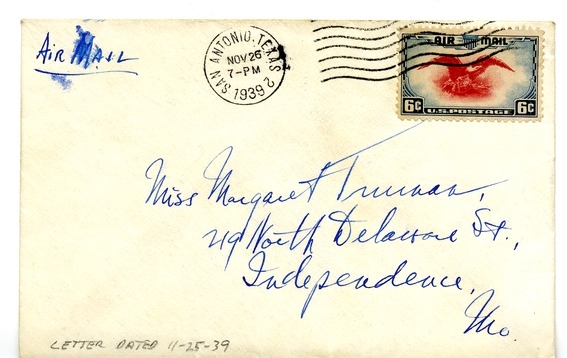 Air Mail
SAN ANTONIO, TEXAS
NOV 26
7-PM
1939
2
AIR MAIL
6¢ U.S. POSTAGE 6¢
Miss Margaret Truman,
219 North Delaware St.,
Independence,
Mo.
LETTER DATED 11-25-39